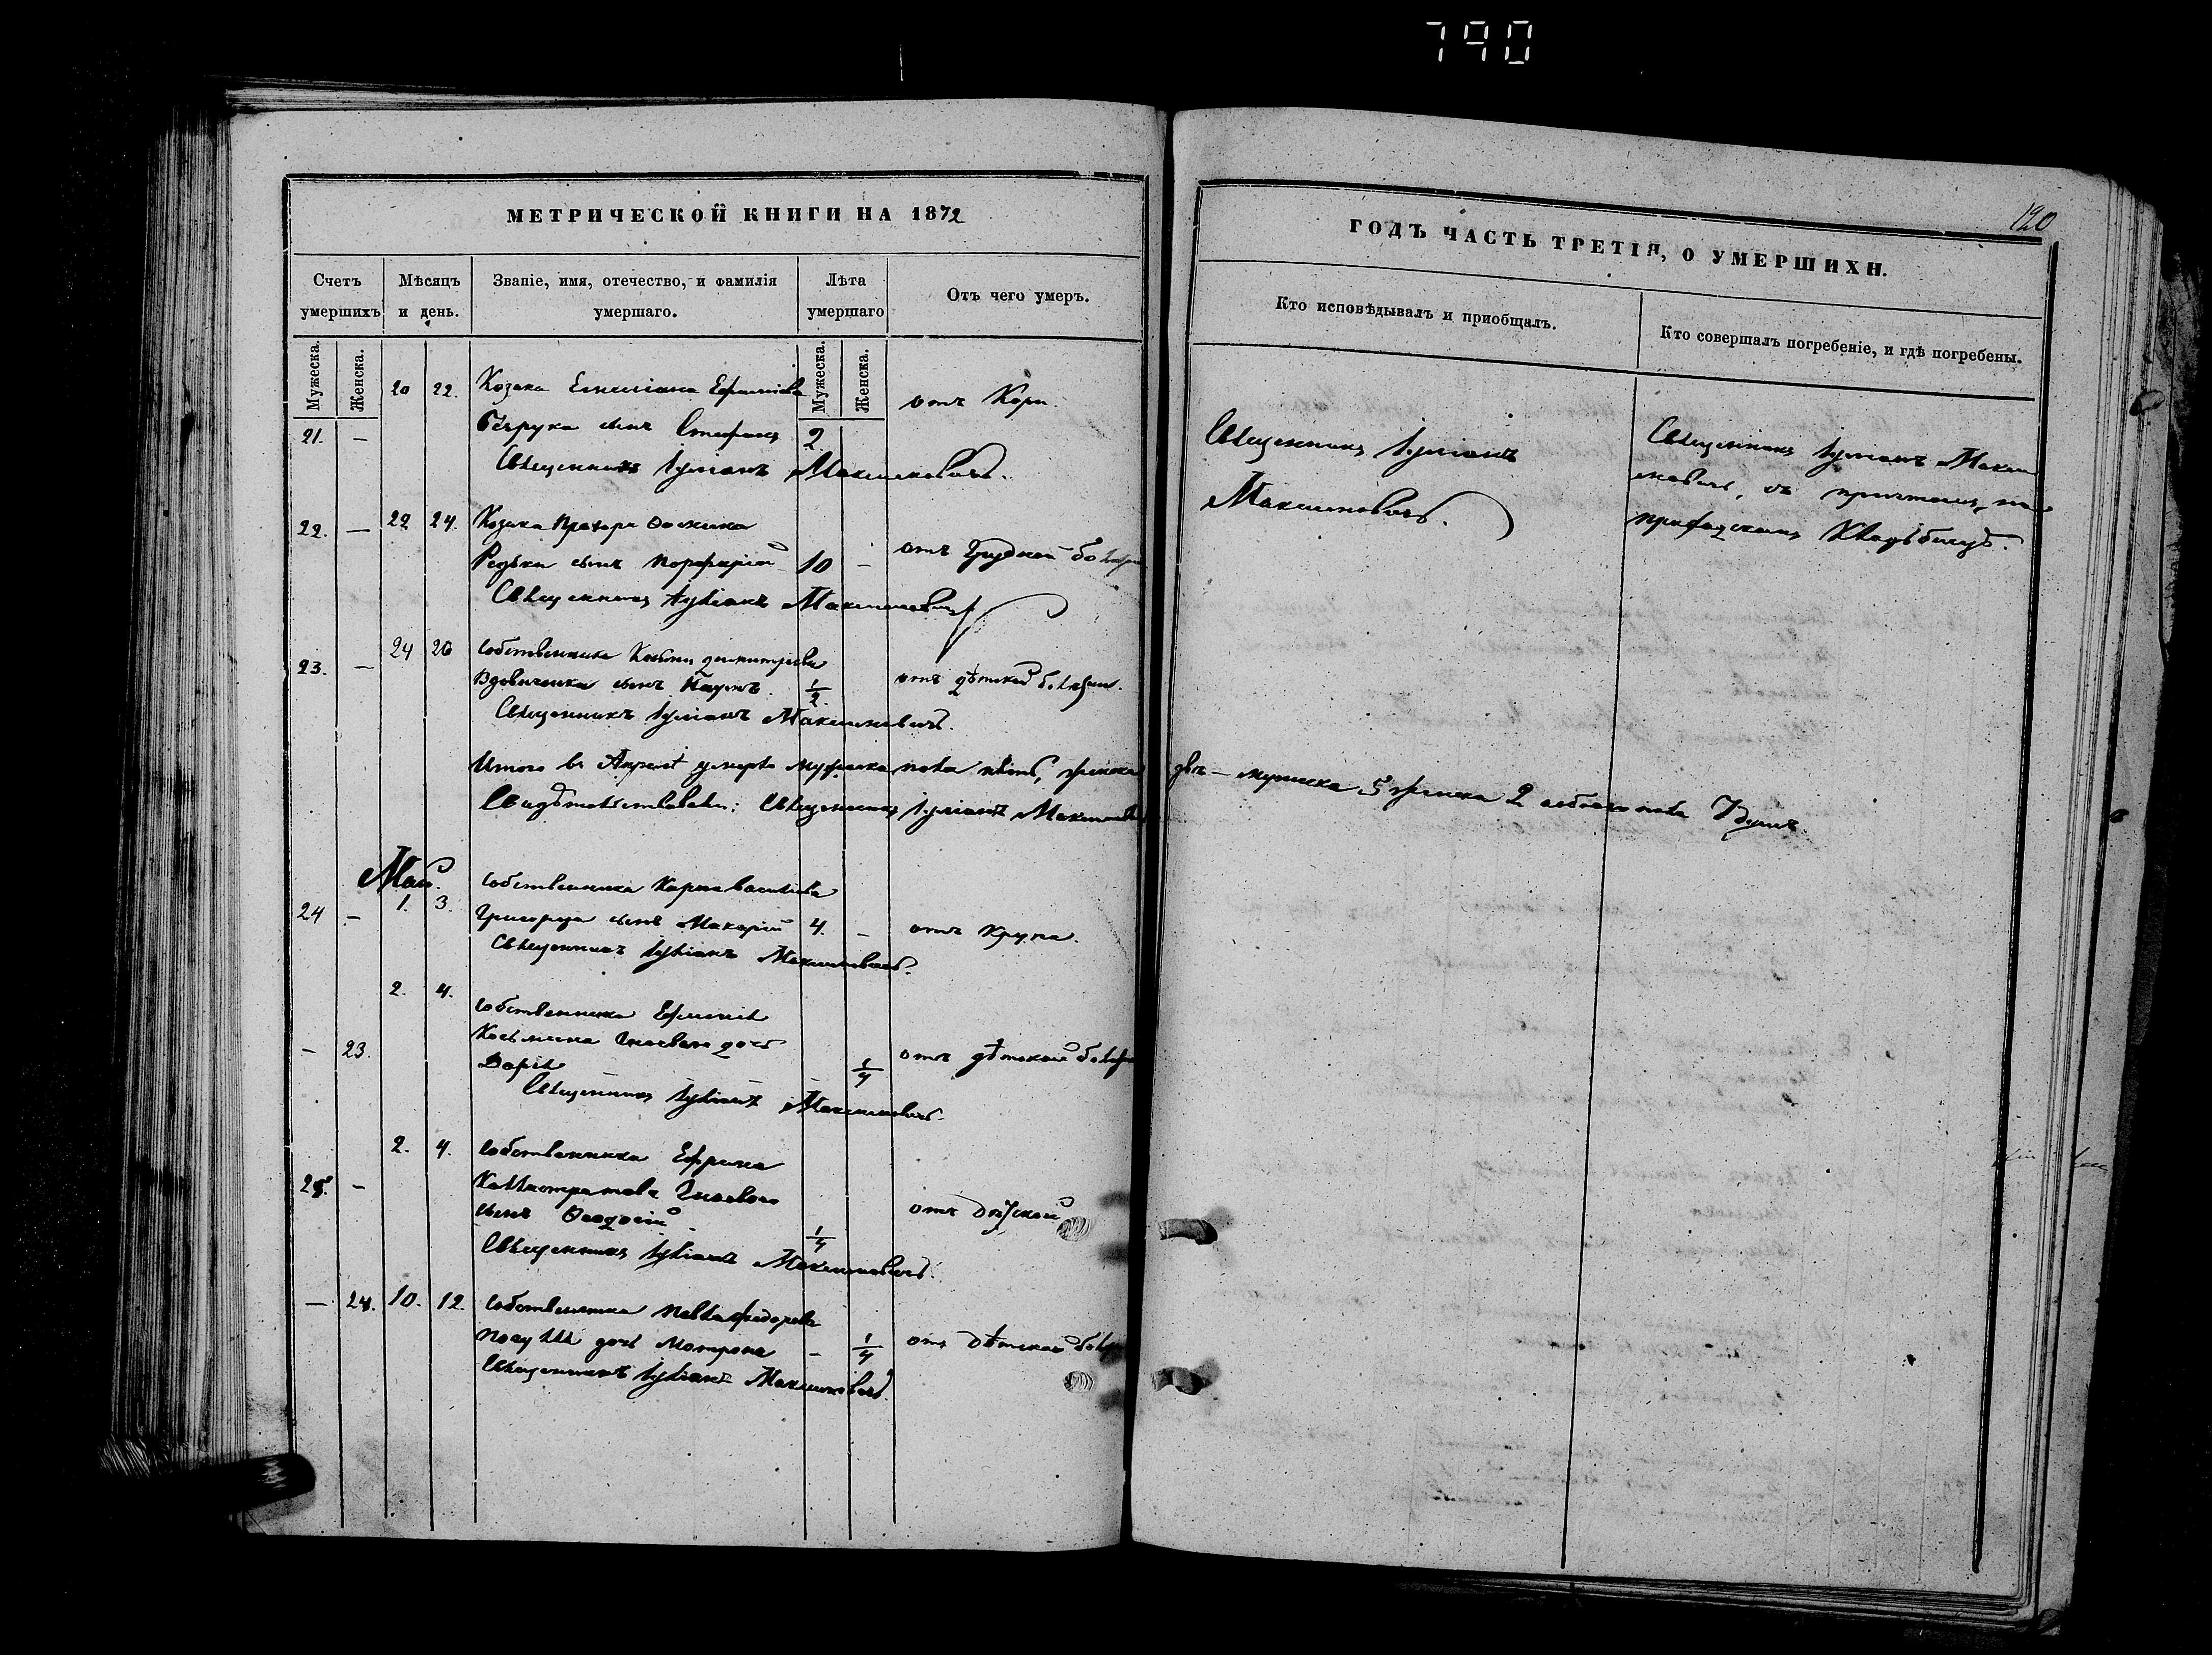 790
120
МЕТРИЧЕСКОЙ КНИГИ НА 1872
ГОДЪ ЧАСТЬ ТРЕТІЯ, О УМЕРШИХЪ.
Счетъ умершихъ
Мѣсяцъ и день.
Званіе, имя, отечество, и фамилія умершаго.
Лѣта умершаго
Отъ чего умеръ.
Кто исповѣдывалъ и приобщалъ.
Кто совершалъ погребеніе, и гдѣ погребены.
Мужеска.
Женска.
Мужеска.
Женска.
20 22. Козака Емиліана
отъ Кори.
21. — сынъ Стефанъ 2
Священникъ Іуліанъ Максимовичъ.
Священникъ Іуліанъ
Максимовичъ.
Священникъ Іуліанъ Макси
мовичъ, съ причтомъ, на
приходскомъ Кладбищѣ.
22. — 22 24. Козака Прохора
Редька сынъ Порфирій 10 — отъ Грудной болѣзни
Священникъ Іуліанъ Максимовичъ
23. — 24 26 Собственника Димитріева
Вдовиченка сынъ Наумъ. 1/2 отъ дѣтской болѣзни.
Священникъ Іуліанъ Максимовичъ.
Итого въ Апрѣлѣ умерло мужеска пола пять, женска двѣ — мужеска 5 женска 2 обоего пола 7 душъ.
Священникъ Іуліанъ Максимовичъ
Май.
24 — 1. 3. Собственника Карпа Васильева
сынъ Макарій 4. — отъ Крупа.
Священникъ Іуліанъ Максимовичъ.
2. 4.
Собственника
— 23. Косьмина дочь
Дарія — 1/4 отъ дѣтской болѣзни
Священникъ Іуліанъ Максимовичъ.
2. 4. Собственника Ефрема
25. — Каллистратова
сынъ Ѳеодосій 1/4 отъ дѣтской
Священникъ Іуліанъ Максимовичъ.
— 24. 10. 12. Собственника Павла Федорова
дочь Мотрона — 1/4 отъ дѣтской болѣзни
Священникъ Іуліанъ Максимовичъ.